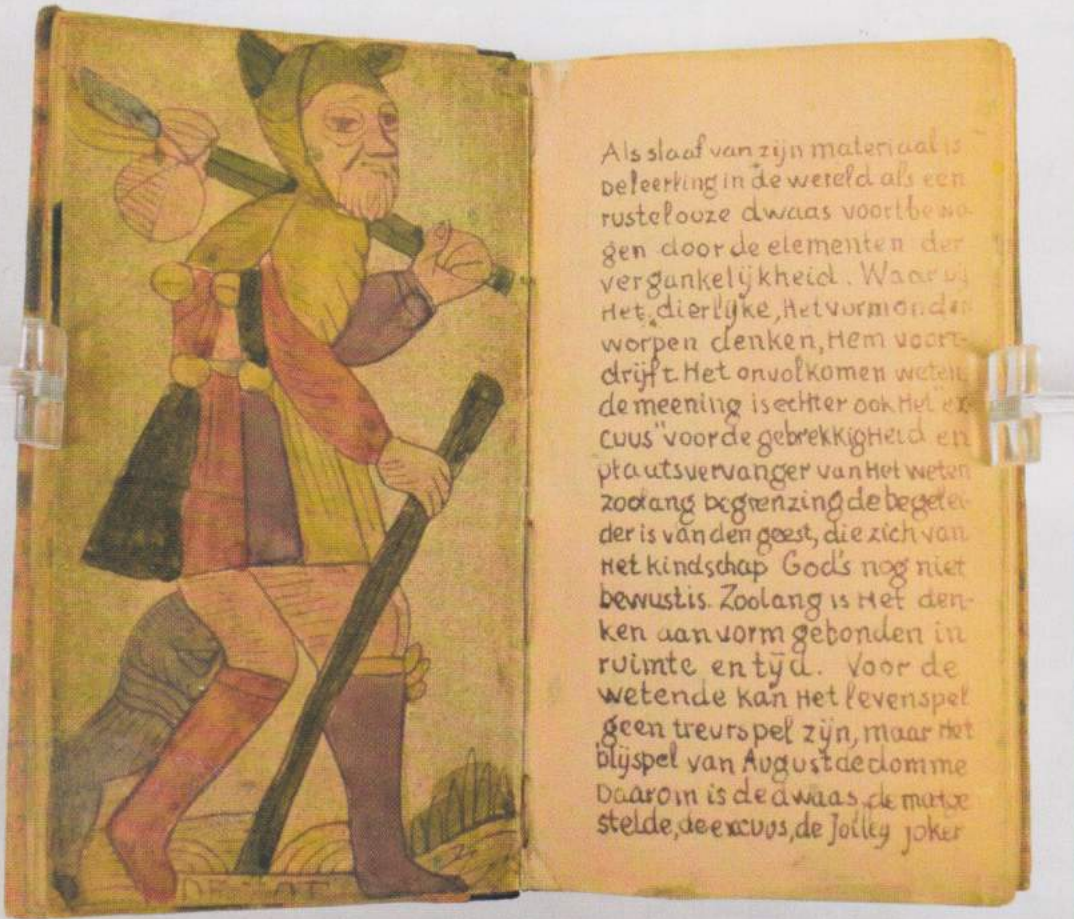 Als slaaf van zijn materiaal is
De leerling in de wereld als een
rustelooze dwaas voortbewo-
gen door de elementen der
vergankelijkheid. Waar
Het dierlijke, Het vormonder
worpen denken, Hem voort-
drijft. Het onvolkomen weten,
de meening is echter ook Het ex-
cuus" voor de gebrekkigheid en
plaatsvervanger van Het weten
zoolang begrenzing de begelei-
der is van den geest, die zich van
Het kindschap God's nog niet
bewust is. Zoolang is Het den-
ken aan vorm gebonden in
ruimte en tijd. Voor de
wetende kan Het levenspel
geen treurspel zijn, maar Het
blijspel van August de domme
Daarom is de dwaas, de
stelde, de excuus, de Jolley joker